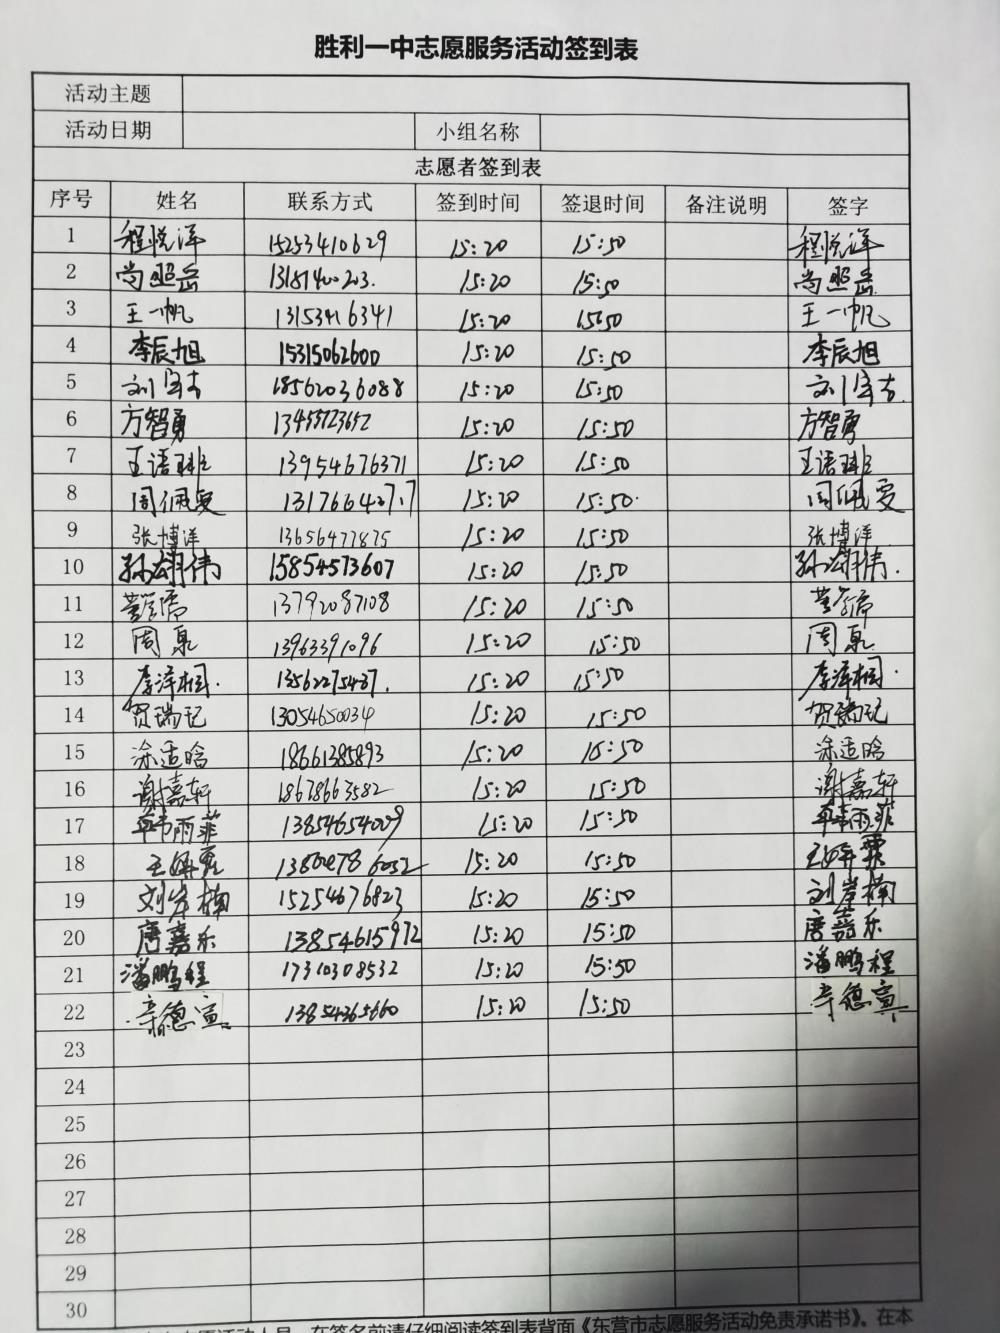 胜利一中志愿服务活动签到表
活动主题
活动日期 小组名称
志愿者签到表
序号 姓名 联系方式 签到时间 签退时间 备注说明 签字
1 程悦洋 15253410629 15:20 15:50 程悦洋
2 尚熙岳 15:20 15:50 尚熙岳
3 王一帆 13153416341 15:20 15:50 王一帆
4 李辰旭 15315062600 15:20 15:50 李辰旭
5 18562036088 15:20 15:50
6 方智勇 15:20 15:50 方智勇
7 王语琳 13954676371 15:20 15:50 王语琳
8 周佩雯 15:20 15:50 周佩雯
9 张博洋 13656477875 15:20 15:50 张博洋
10 孙翊伟 15854573607 15:20 15:50 孙翊伟
11 13792087108 15:20 15:50
12 周泉 13963391096 15:20 15:50 周泉
13 李泽桐 15:20 15:50 李泽桐
14 贺瑞记 13054650034 15:20 15:50 贺瑞记
15 涂适晗 18661385893 15:20 15:50 涂适晗
16 谢嘉轩 18678663582 15:20 15:50 谢嘉轩
17 韦雨菲 13854654009 15:20 15:50 韦雨菲
18 15:20 15:50
19 刘岸楠 15254676823 15:20 15:50 刘岸楠
20 唐嘉乐 13854615972 15:20 15:50 唐嘉乐
21 潘鹏程 17310308532 15:20 15:50 潘鹏程
22 辛德宣 13854365660 15:20 15:50 辛德宣
23
24
25
26
27
28
29
30
在签名前请仔细阅读签到表背面《东营市志愿服务活动免责承诺书》。在本